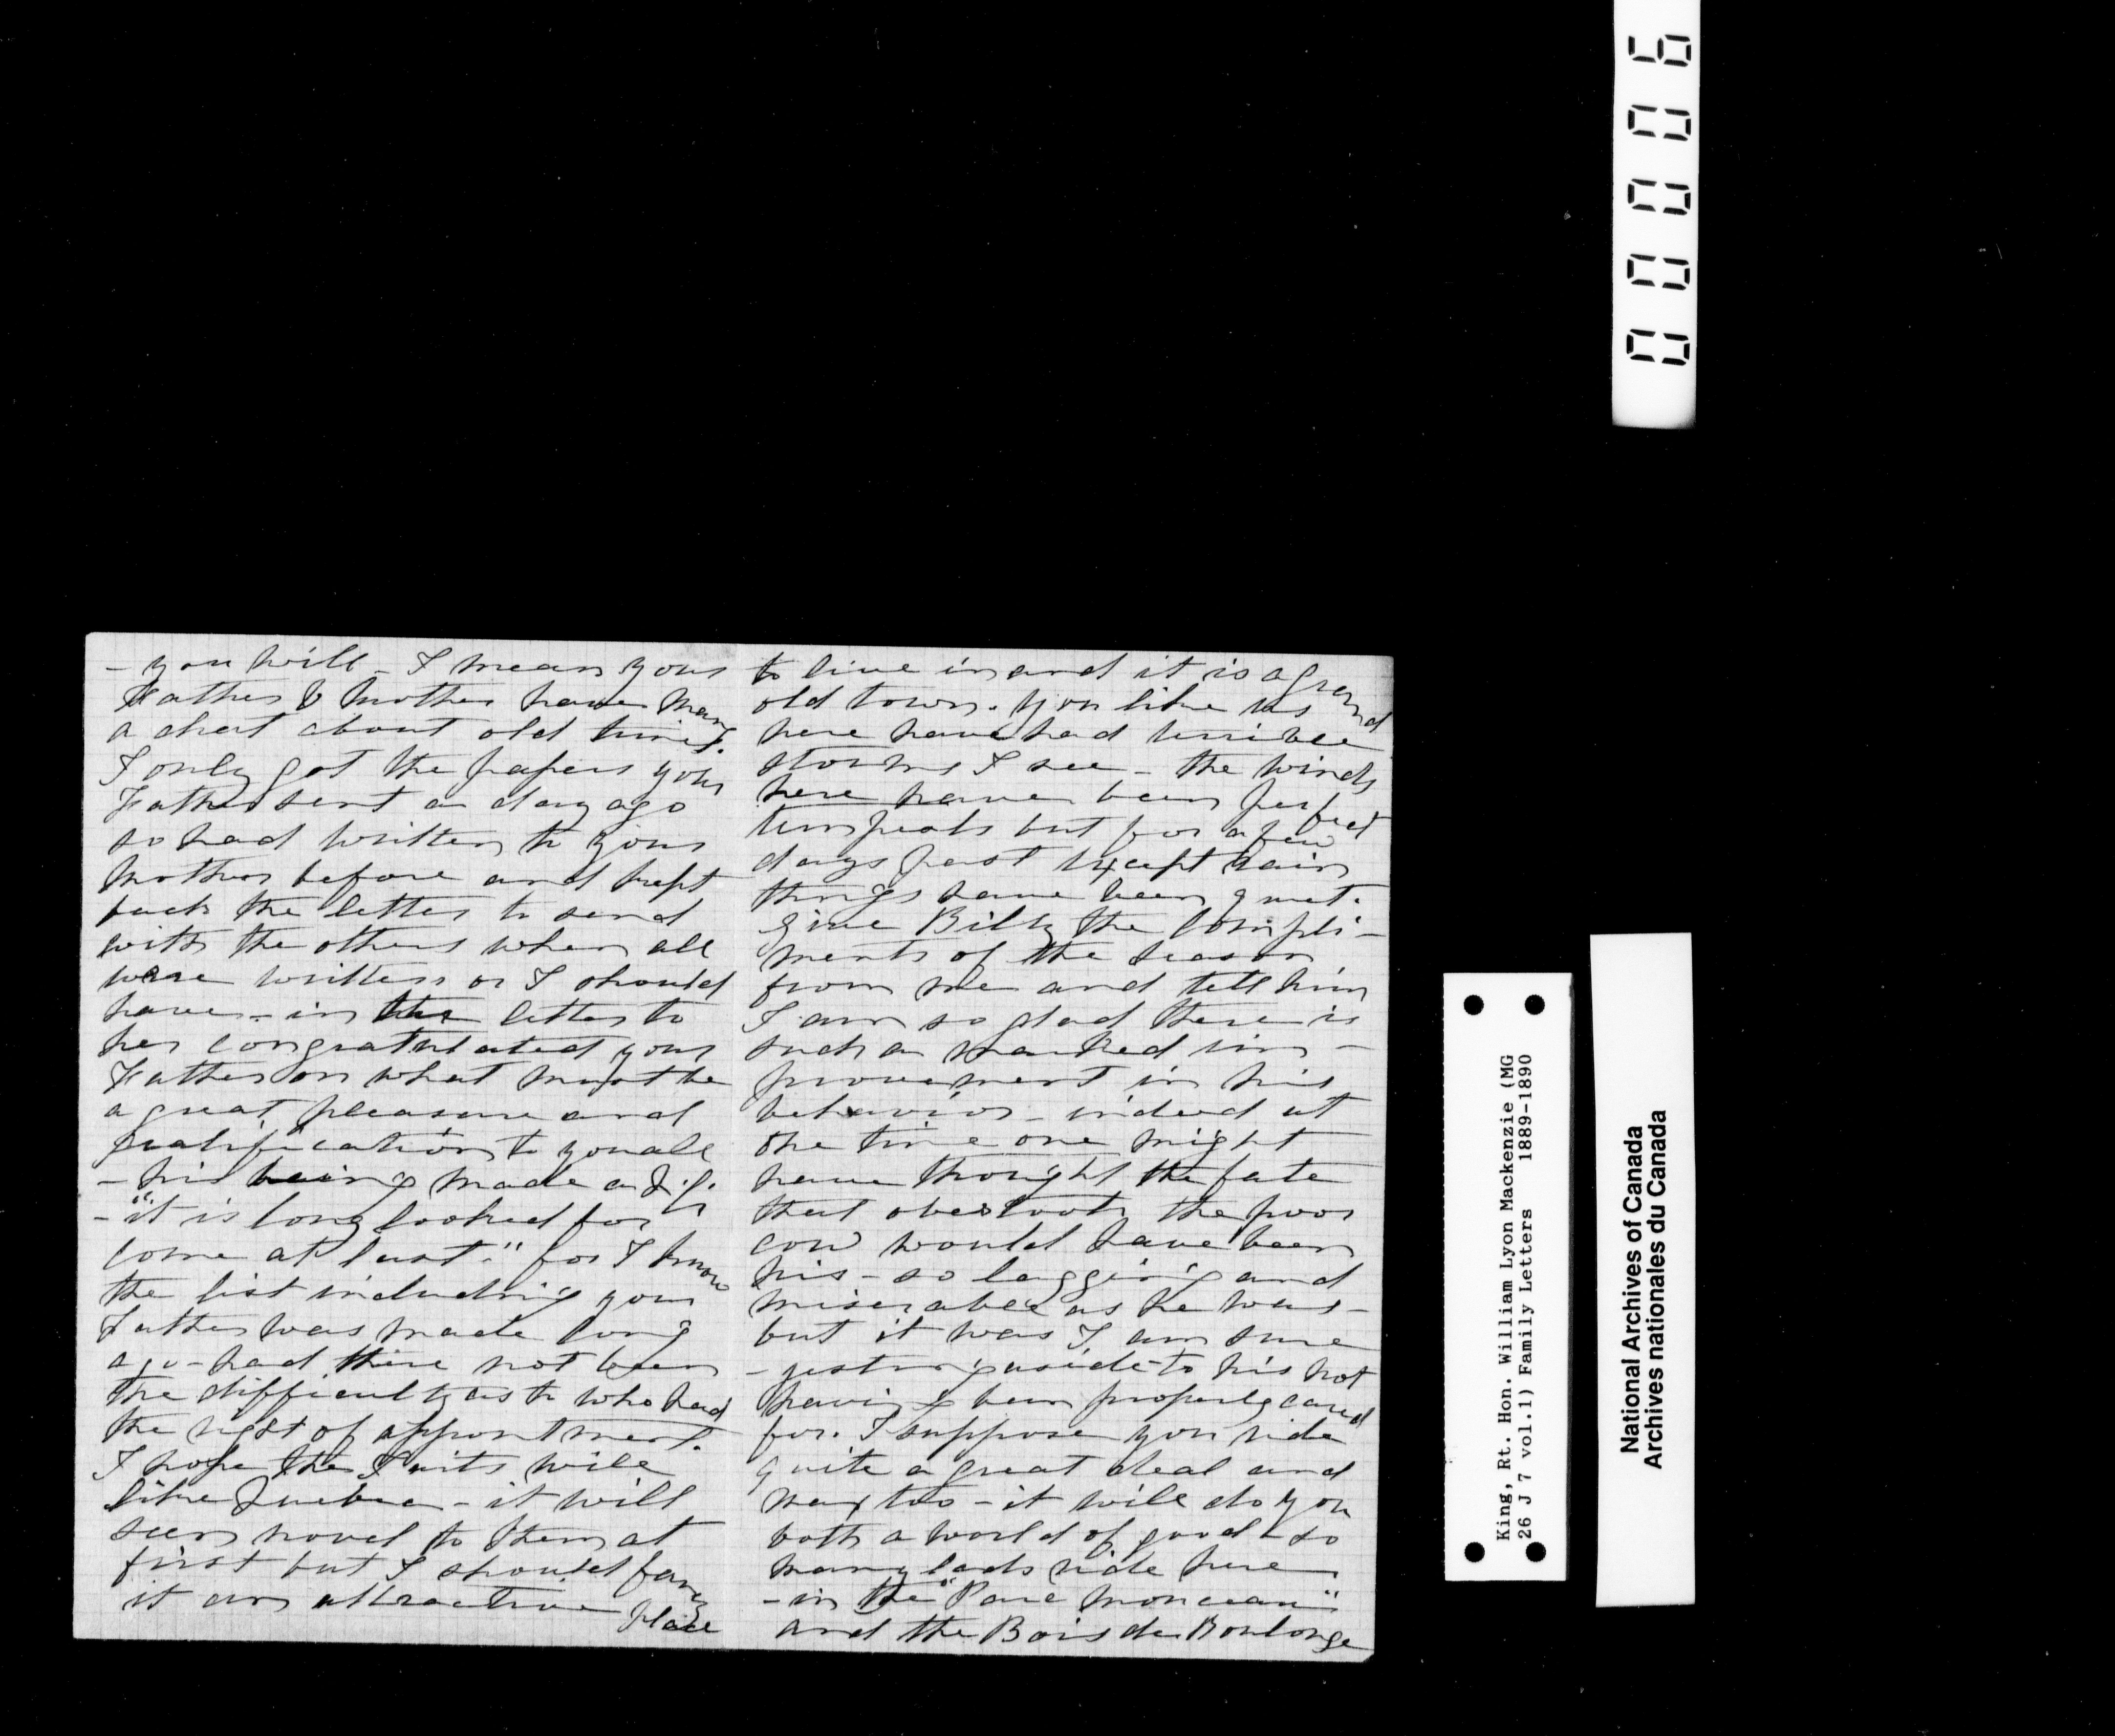 - you will - I mean your
Father & Mother have many
a chat about old times.
I only got the papers your
Father sent a day ago
so had written to your
Mother before and kept
back the letter to send
with the others when all
were written or I should
have - in the letter to
her congratulated your
Father on what must be
a great pleasure and
gratification to you all
- his being made a Q.C.
- "it is long looked for
come at last." for I know
the list including your
Father was made long
ago - had there not been
the difficulty as to who had
the right of appointment.
I hope the will
like Quebec - it will
seem novel to them at
first but I should fancy
it an attractive place
to live in and it is a grand
old town. You like us
here have had terrible
storms I see - the winds
here have been perfect
tempests but for a few
days past except rain
things have been quiet.
Give Billy the compli-
ments of the season
from me and tell him
I am so glad there is
such a marked im-
provement in his
behavior - indeed at
one time one might
have thought the fate
that overtook the poor
cow would have been
his - so lagging and
miserable as he was -
but it was I am sure
- jesting aside - to his not
having been properly cared
for. I suppose you ride
quite a great deal and
Max too - it will do you
both a world of good - so
many lads ride here
- in the "Parc Monceau"
and the Bois de Boulonge
00006
King, Rt. Hon. William Lyon Mackenzie (MG
26 J 7 vol.1) Family Letters 1889-1890
National Archives of Canada
Archives nationales du Canada